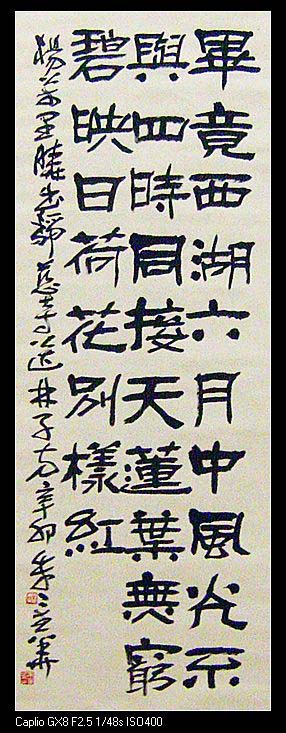 畢竟西湖六月中風光不
與四時同接天蓮葉無窮
碧映日荷花別樣紅
楊萬里曉出靜慈寺送林子方辛卯
Caplio GX8 F2.5 1/48s ISO400